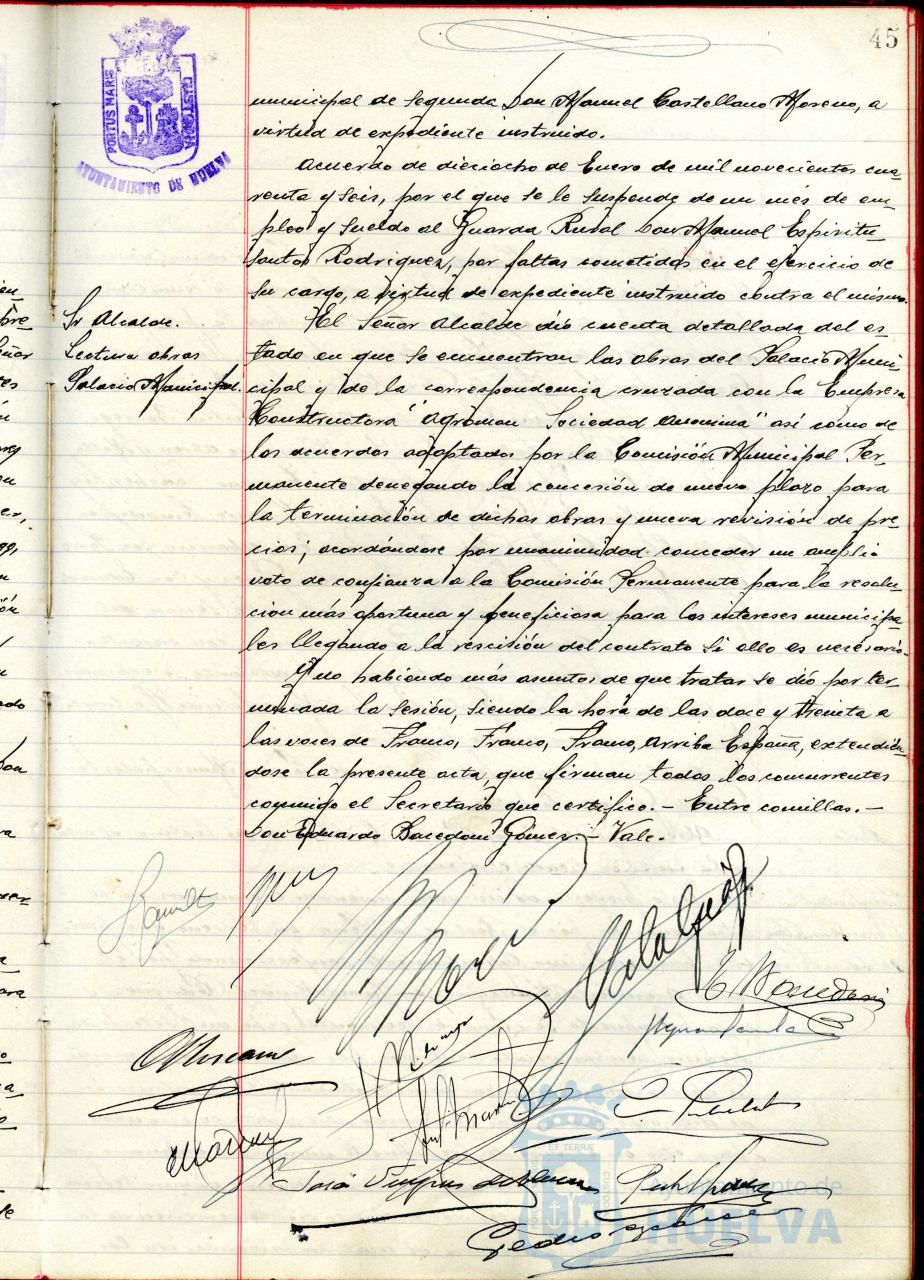 45
PORTUS MARIS
CUSTODIA
AYUNTAMIENTO DE HUELVA
municipal de segunda Don Manuel Castellano Moreno, a
virtud de expediente instruido.
Acuerdo de dieciocho de Enero de mil novecientos cua-
renta y seis, por el que se le suspende de un més de em-
pleo y sueldo al Guarda Rural Don Manuel Espiritu-
Santos Rodriguez, por faltas cometidas en el ejercicio de
su cargo, a virtud de expediente instruido contra el mismo.
Sr Alcalde.
Lectura obras
Palacio Municipal.
El Señor Alcalde dió cuenta detallada del es
tado en que se encuentran las obras del Palacio Muni-
cipal y de la correspondencia cruzada con la Empresa
Constructora "Agroman Sociedad Anonima" así como de
los acuerdos adoptados por la Comisión Municipal Per-
manente denegando la concesión de nuevo plazo para
la terminación de dichas obras y nueva revisión de pre-
cios; acordándose por unanimidad conceder un amplio
voto de confianza a la Comisión Permanente para la resolu-
cion más oportuna y beneficiosa para los intereses municipa-
les llegando a la rescisión del contrato si ello es necesario.
Y no habiendo más asuntos de que tratar se dió por ter-
minada la sesión, siendo la hora de las doce y treinta a
las voces de Franco, Franco, Franco, Arriba España, extendién-
dose la presente acta, que firman todos los concurrentes
conmigo el Secretario que certifico. — Entre comillas. —
Don Eduardo Gómez. — Vale.
José
Pedro
Ayuntamiento de
HUELVA